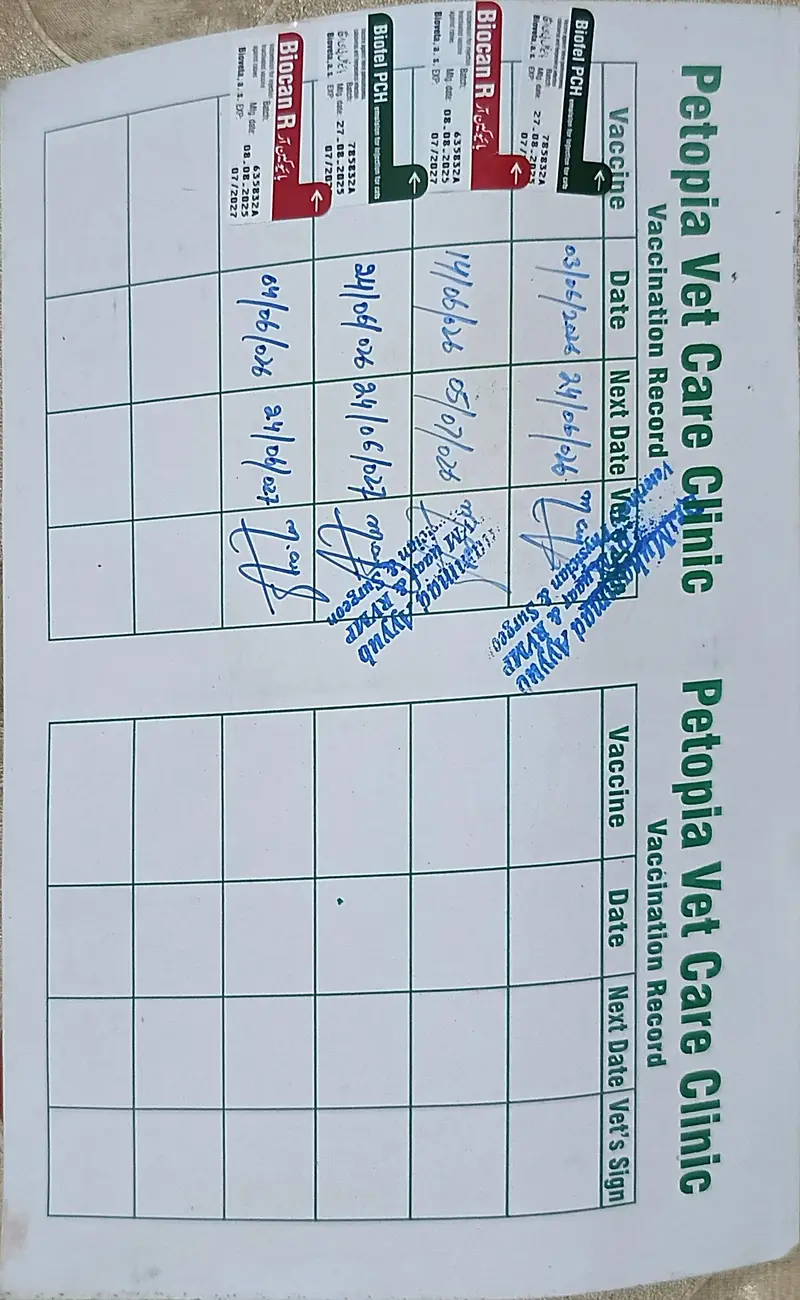 Petopia Vet Care Clinic
Vaccination Record
Vaccine Date Next Date Vet's Sign
Biofel PCH emulsion for injection for cats
Batch: 785832A
Mfg. date: 27.08.2025
Bioveta, a. s. EXP:
03/06/2026 24/06/026
Biocan R بائیوکین آر
Batch: 635832A
Mfg. date: 08.08.2025
Bioveta, a. s. EXP: 07/2027
14/06/026 05/07/026
Biofel PCH emulsion for injection for cats
Batch: 785832A
Mfg. date: 27-08-2025
Bioveta, a. s. EXP:
24/06/026 24/06/027
Biocan R بائیوکین آر
Batch: 635832A
Mfg. date: 08.08.2025
Bioveta, a. s. EXP: 07/2027
04/06/026 24/06/027
Ayyub
& RVMP
& Surgeon
Ayyub
& RVMP
Physician & Surgeon
Petopia Vet Care Clinic
Vaccination Record
Vaccine Date Next Date Vet's Sign